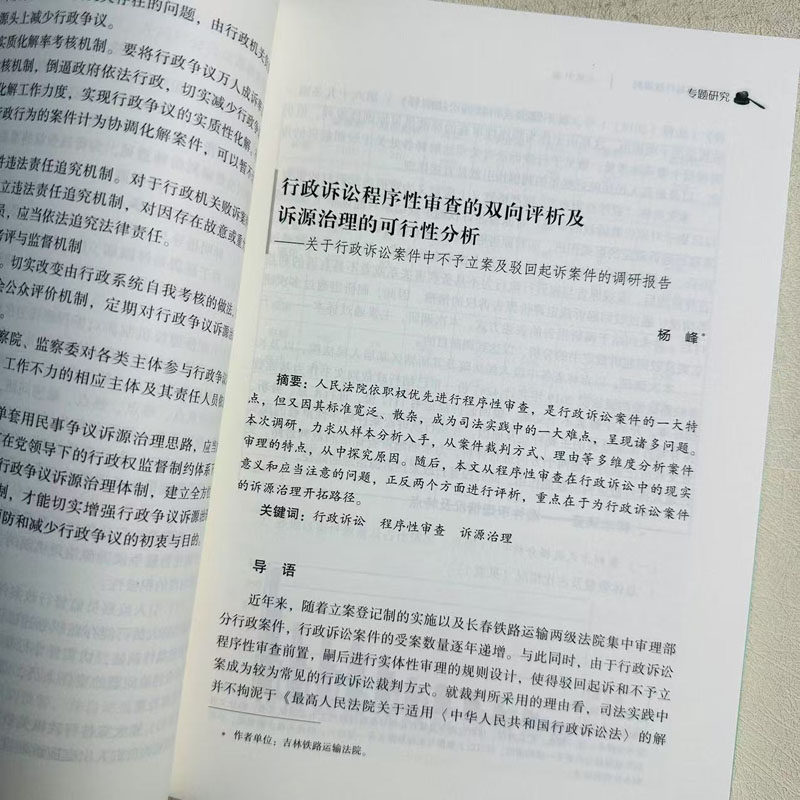 存在的问题，由行政机关
源头上减少行政争议。
实质化解率考核机制。要将行政争议万人成诉
核机制，倒逼政府依法行政，切实减少行政争
化解工作力度，实现行政争议的实质性化解，
政行为的案件计为协调化解案件，可以暂不
件违法责任追究机制。对于行政机关败诉案
立违法责任追究机制，对因存在故意或重
员，应当依法追究法律责任。
考评与监督机制
，切实改变由行政系统自我考核的做法
会公众评价机制，定期对行政争议诉源
察院、监察委对各类主体参与行政争议
工作不力的相应主体及其责任人员
单套用民事争议诉源治理思路，应
在党领导下的行政权监督制约体系
行政争议诉源治理体制，建立全方
制，才能切实增强行政争议诉源
预防和减少行政争议的初衷与目的。
专题研究
行政诉讼程序性审查的双向评析及
诉源治理的可行性分析
——关于行政诉讼案件中不予立案及驳回起诉案件的调研报告
杨 峰*
摘要：人民法院依职权优先进行程序性审查，是行政诉讼案件的一大特
点，但又因其标准宽泛、散杂，成为司法实践中的一大难点，呈现诸多问题。
本次调研，力求从样本分析入手，从案件裁判方式、理由等多维度分析案件
审理的特点，从中探究原因。随后，本文从程序性审查在行政诉讼中的现实
意义和应当注意的问题，正反两个方面进行评析，重点在于为行政诉讼案件
的诉源治理开拓路径。
关键词：行政诉讼 程序性审查 诉源治理
导 语
近年来，随着立案登记制的实施以及长春铁路运输两级法院集中审理部
分行政案件，行政诉讼案件的受案数量逐年递增。与此同时，由于行政诉讼
程序性审查前置，嗣后进行实体性审理的规则设计，使得驳回起诉和不予立
案成为较为常见的行政诉讼裁判方式。就裁判所采用的理由看，司法实践中
并不拘泥于《最高人民法院关于适用〈中华人民共和国行政诉讼法〉的解
* 作者单位：吉林铁路运输法院。